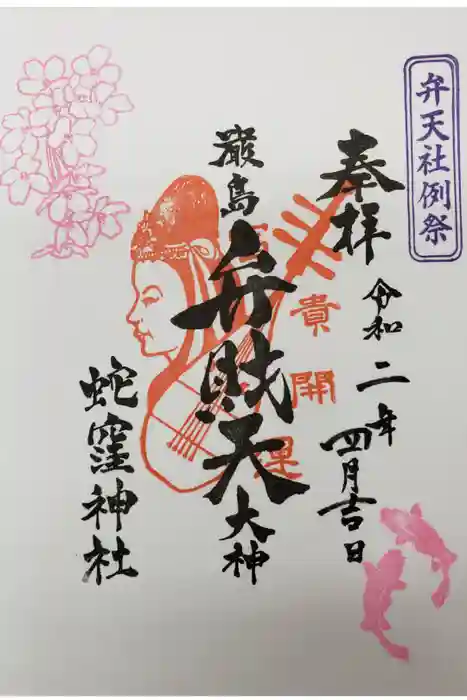 弁天社例祭
奉拝
令和二年
四月吉日
巌島
弁財天
大神
貴
開
運
蛇窪神社